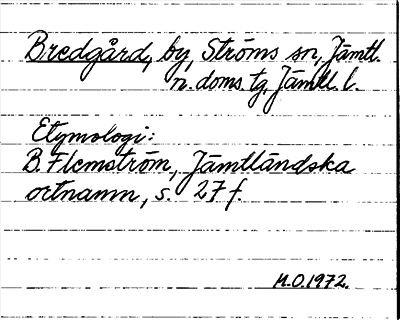 Bredgård, by, Ströms sn, Jämtl.
n. doms. tg, Jämtl. l.
Etymologi:
B. Flemström, Jämtländska
ortnamn, s. 27 f.
M.O. 1972.